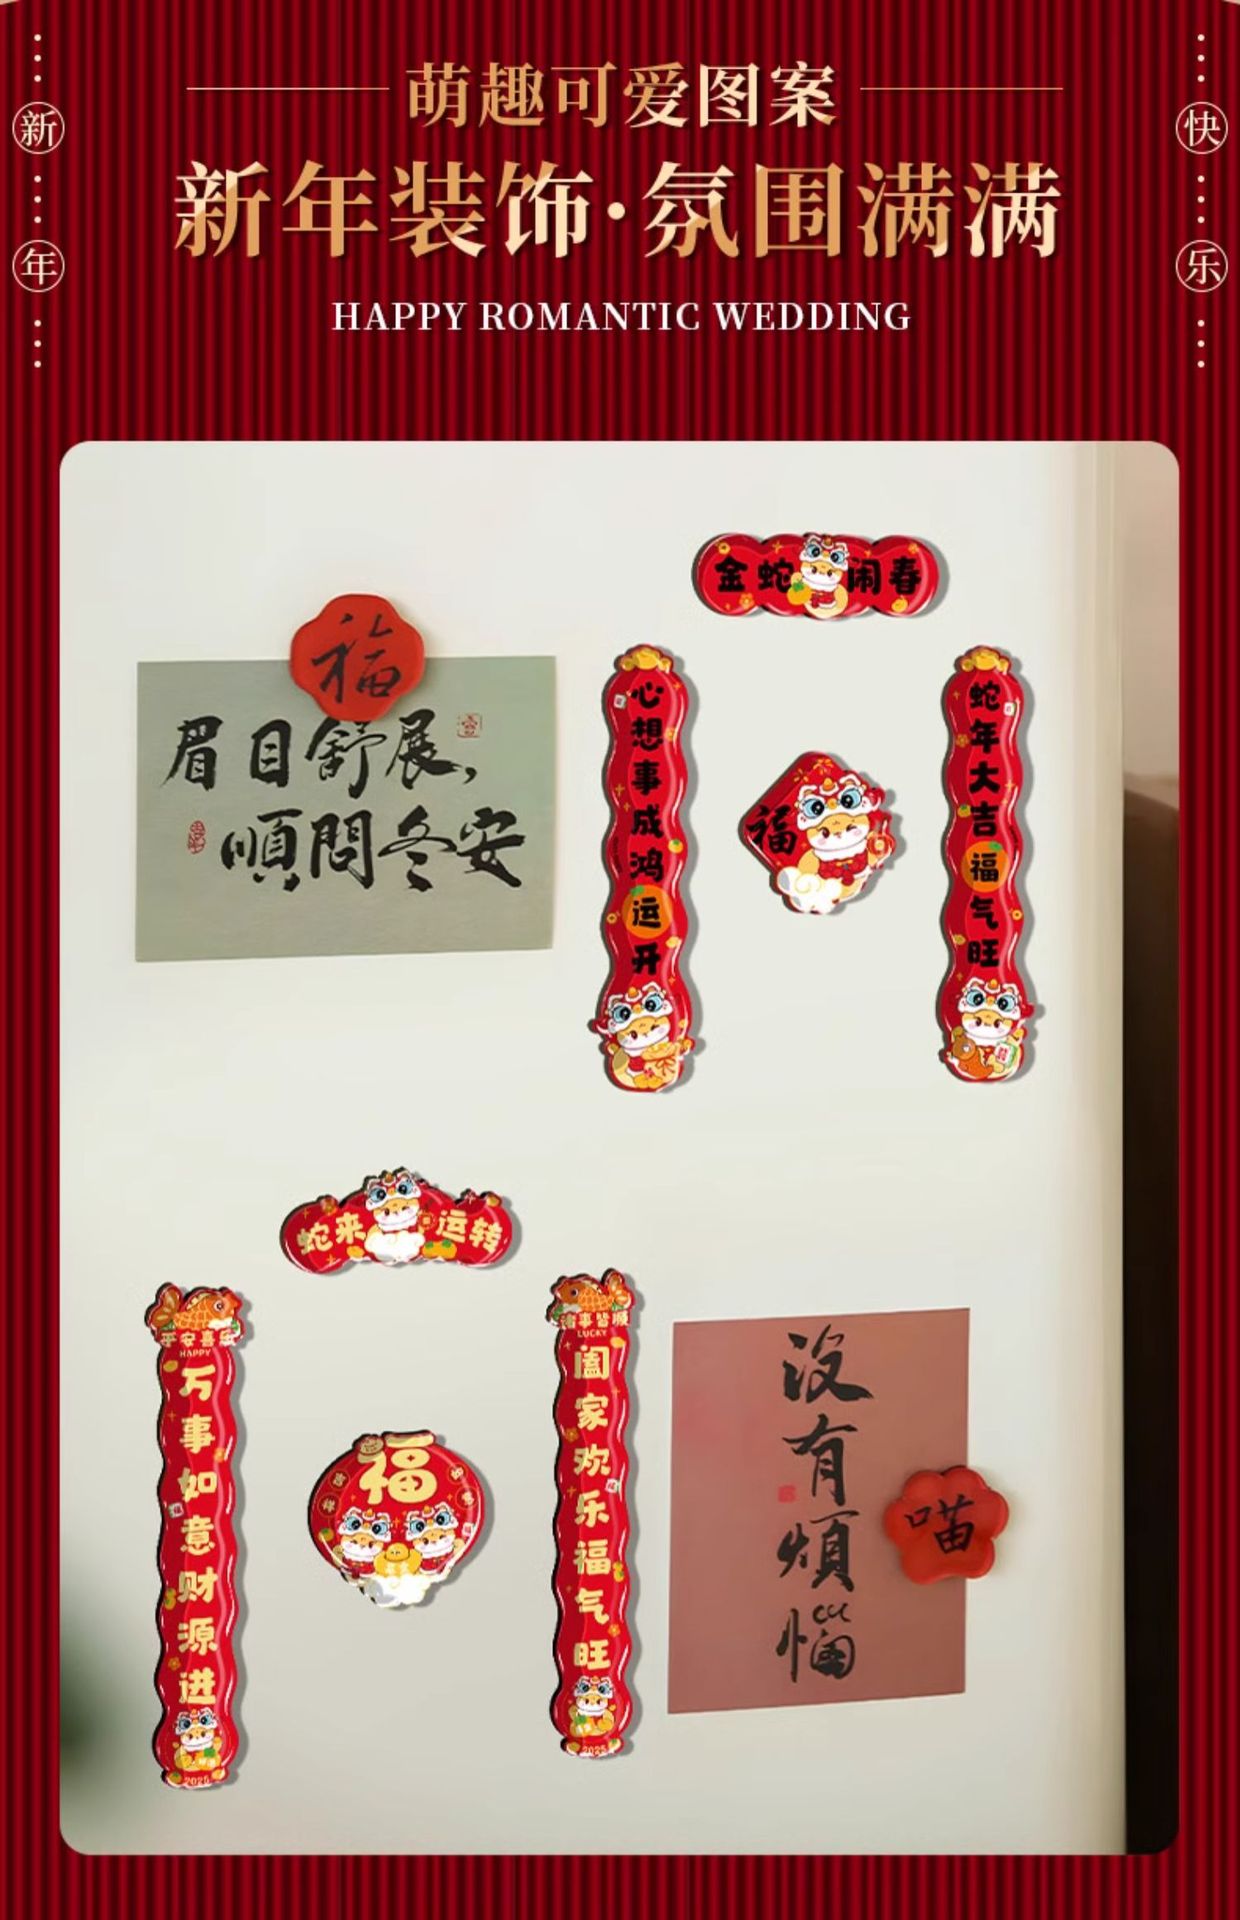 萌趣可爱图案
新年装饰·氛围满满
HAPPY ROMANTIC WEDDING
新年
快乐
福
眉目舒展,
順問冬安
金蛇闹春
心想事成鸿运开
福
蛇年大吉福气旺
蛇来运转
平安喜乐
HAPPY
万事如意财源进
2025
福
诸事皆顺
LUCKY
阖家欢乐福气旺
2025
没有煩惱
喵